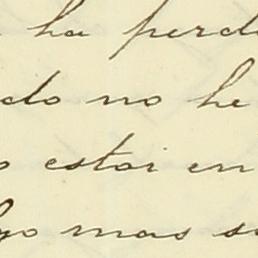 ha perd
do no he
o estoi en
go mas s